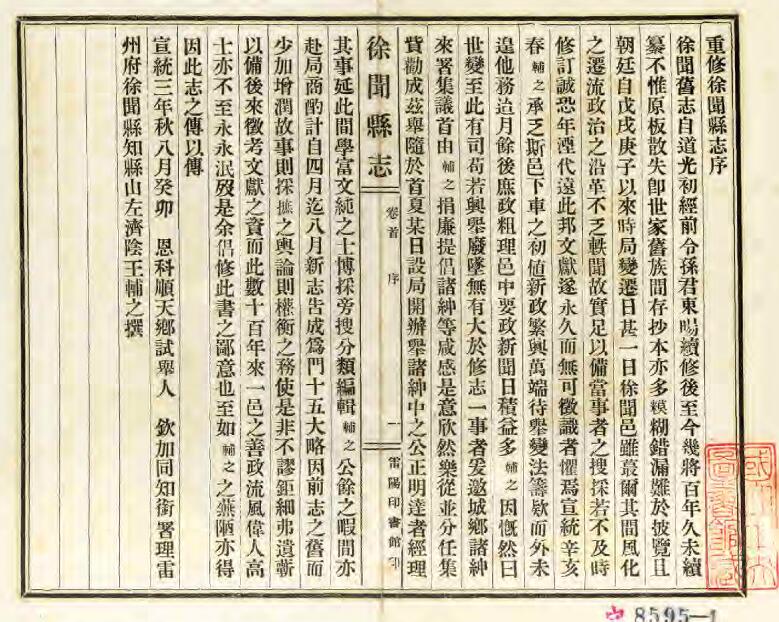 重修徐聞縣志序
徐聞舊志自道光初經前令孫君東暘續修後至今幾將百年久未續
纂不惟原板散失卽世家舊族間存抄本亦多糢糊錯漏難於披覽且
朝廷自戊戌庚子以來時局變遷日甚一日徐聞邑雖蕞爾其間風化
之遷流政治之沿革不乏軼聞故實足以備當事者之搜採若不及時
修訂誠恐年湮代遠此邦文獻遂永久而無可徵識者懼焉宣統辛亥
春輔之承乏斯邑下車之初値新政繁興萬端待舉變法籌欵而外未
遑他務迨月餘後庶政粗理邑中要政新聞日積益多輔之因慨然曰
世變至此有司苟若興舉廢墜無有大於修志一事者爰邀城鄉諸紳
來署集議首由輔之捐廉提倡諸紳等咸感是意欣然樂從並分任集
貲勸成茲舉隨於首夏某日設局開辦舉諸紳中之公正明達者經理
徐聞縣志
卷首
序
一
雷陽印書館印
其事延此間學富文純之士博採旁搜分類編輯輔之公餘之暇間亦
赴局商酌計自四月迄八月新志告成爲門十五大略因前志之舊而
少加增潤故事則採摭之輿論則權衡之務使是非不謬鉅細弗遺蘄
以備後來徵考文獻之資而此數十百年來一邑之善政流風偉人高
士亦不至永永泯歿是余倡修此書之鄙意也至如輔之之蕪陋亦得
因此志之傳以傳
宣統三年秋八月癸卯 恩科順天鄉試舉人 欽加同知銜署理雷
州府徐聞縣知縣山左濟陰王輔之撰
8595-1